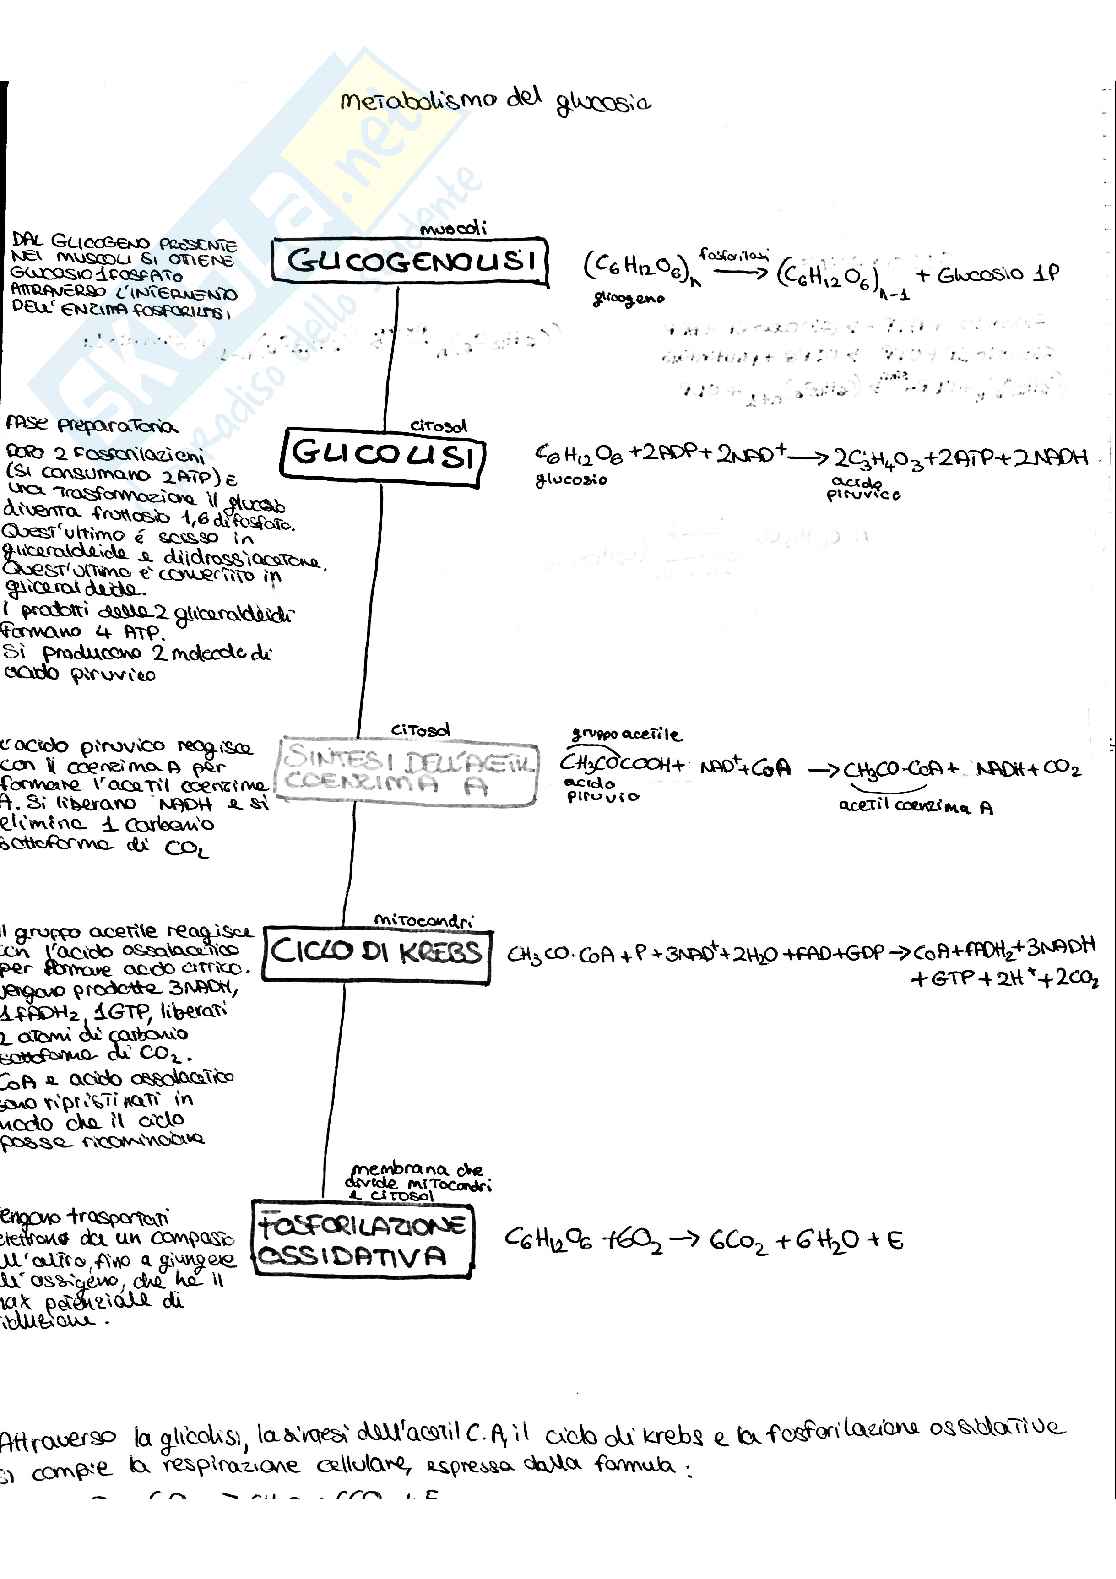 metabolismo del glucosio
skuola.net
paradiso dello studente
DAL GLICOGENO PRESENTE
NEI MUSCOLI SI OTTIENE
GLUCOSIO 1 FOSFATO
ATTRAVERSO L'INTERVENTO
DELL'ENZIMA FOSFORILASI
muscoli
GLICOGENOLISI
(C6H12O6)n fosforilasi → (C6H12O6)n-1 + Glucosio 1P
glicogeno
FASE preparatoria
DOPO 2 Fosforilazioni
(SI CONSUMANO 2ATP) E
una trasformazione il glucosio
diventa fruttosio 1,6 difosfato.
Quest'ultimo è scisso in
gliceraldeide e diidrossiacetone.
Quest'ultimo è convertito in
gliceraldeide.
I prodotti delle 2 gliceraldeidi
formano 4 ATP.
Si producono 2 molecole di
acido piruvico
citosol
GLICOLISI
C6H12O6 + 2ADP + 2NAD+ → 2C3H4O3 + 2ATP + 2NADH
glucosio
acido
piruvico
L'acido piruvico reagisce
con il coenzima A per
formare l'acetil coenzima
A. Si liberano NADH e si
elimina 1 carbonio
sottoforma di CO2
citosol
SINTESI DELL'ACETIL
COENZIMA A
gruppo acetile
CH3COCOOH + NAD+ + CoA → CH3CO-CoA + NADH + CO2
acido
piruvio
acetil coenzima A
Il gruppo acetile reagisce
con l'acido ossalacetico
per formare acido citrico.
Vengono prodotte 3NADH,
1 FADH2, 1GTP, liberati
2 atomi di carbonio
sottoforma di CO2.
CoA e acido ossalacetico
sono ripristinati in
modo che il ciclo
possa ricominciare
mitocondri
CICLO DI KREBS
CH3CO·CoA + P + 3NAD+ + 2H2O + FAD + GDP → CoA + FADH2 + 3NADH
+ GTP + 2H+ + 2CO2
engono trasportati
elettroni da un composto
ll'altro, fino a giungere
ll'ossigeno, che ha il
max potenziale di
riduzione.
membrana che
divide mitocondri
e citosol
FOSFORILAZIONE
OSSIDATIVA
C6H12O6 + 6O2 → 6CO2 + 6H2O + E
Attraverso la glicolisi, la sintesi dell'acetil C.A, il ciclo di krebs e la fosforilazione ossidative
si compie la respirazione cellulare, espressa dalla formula: